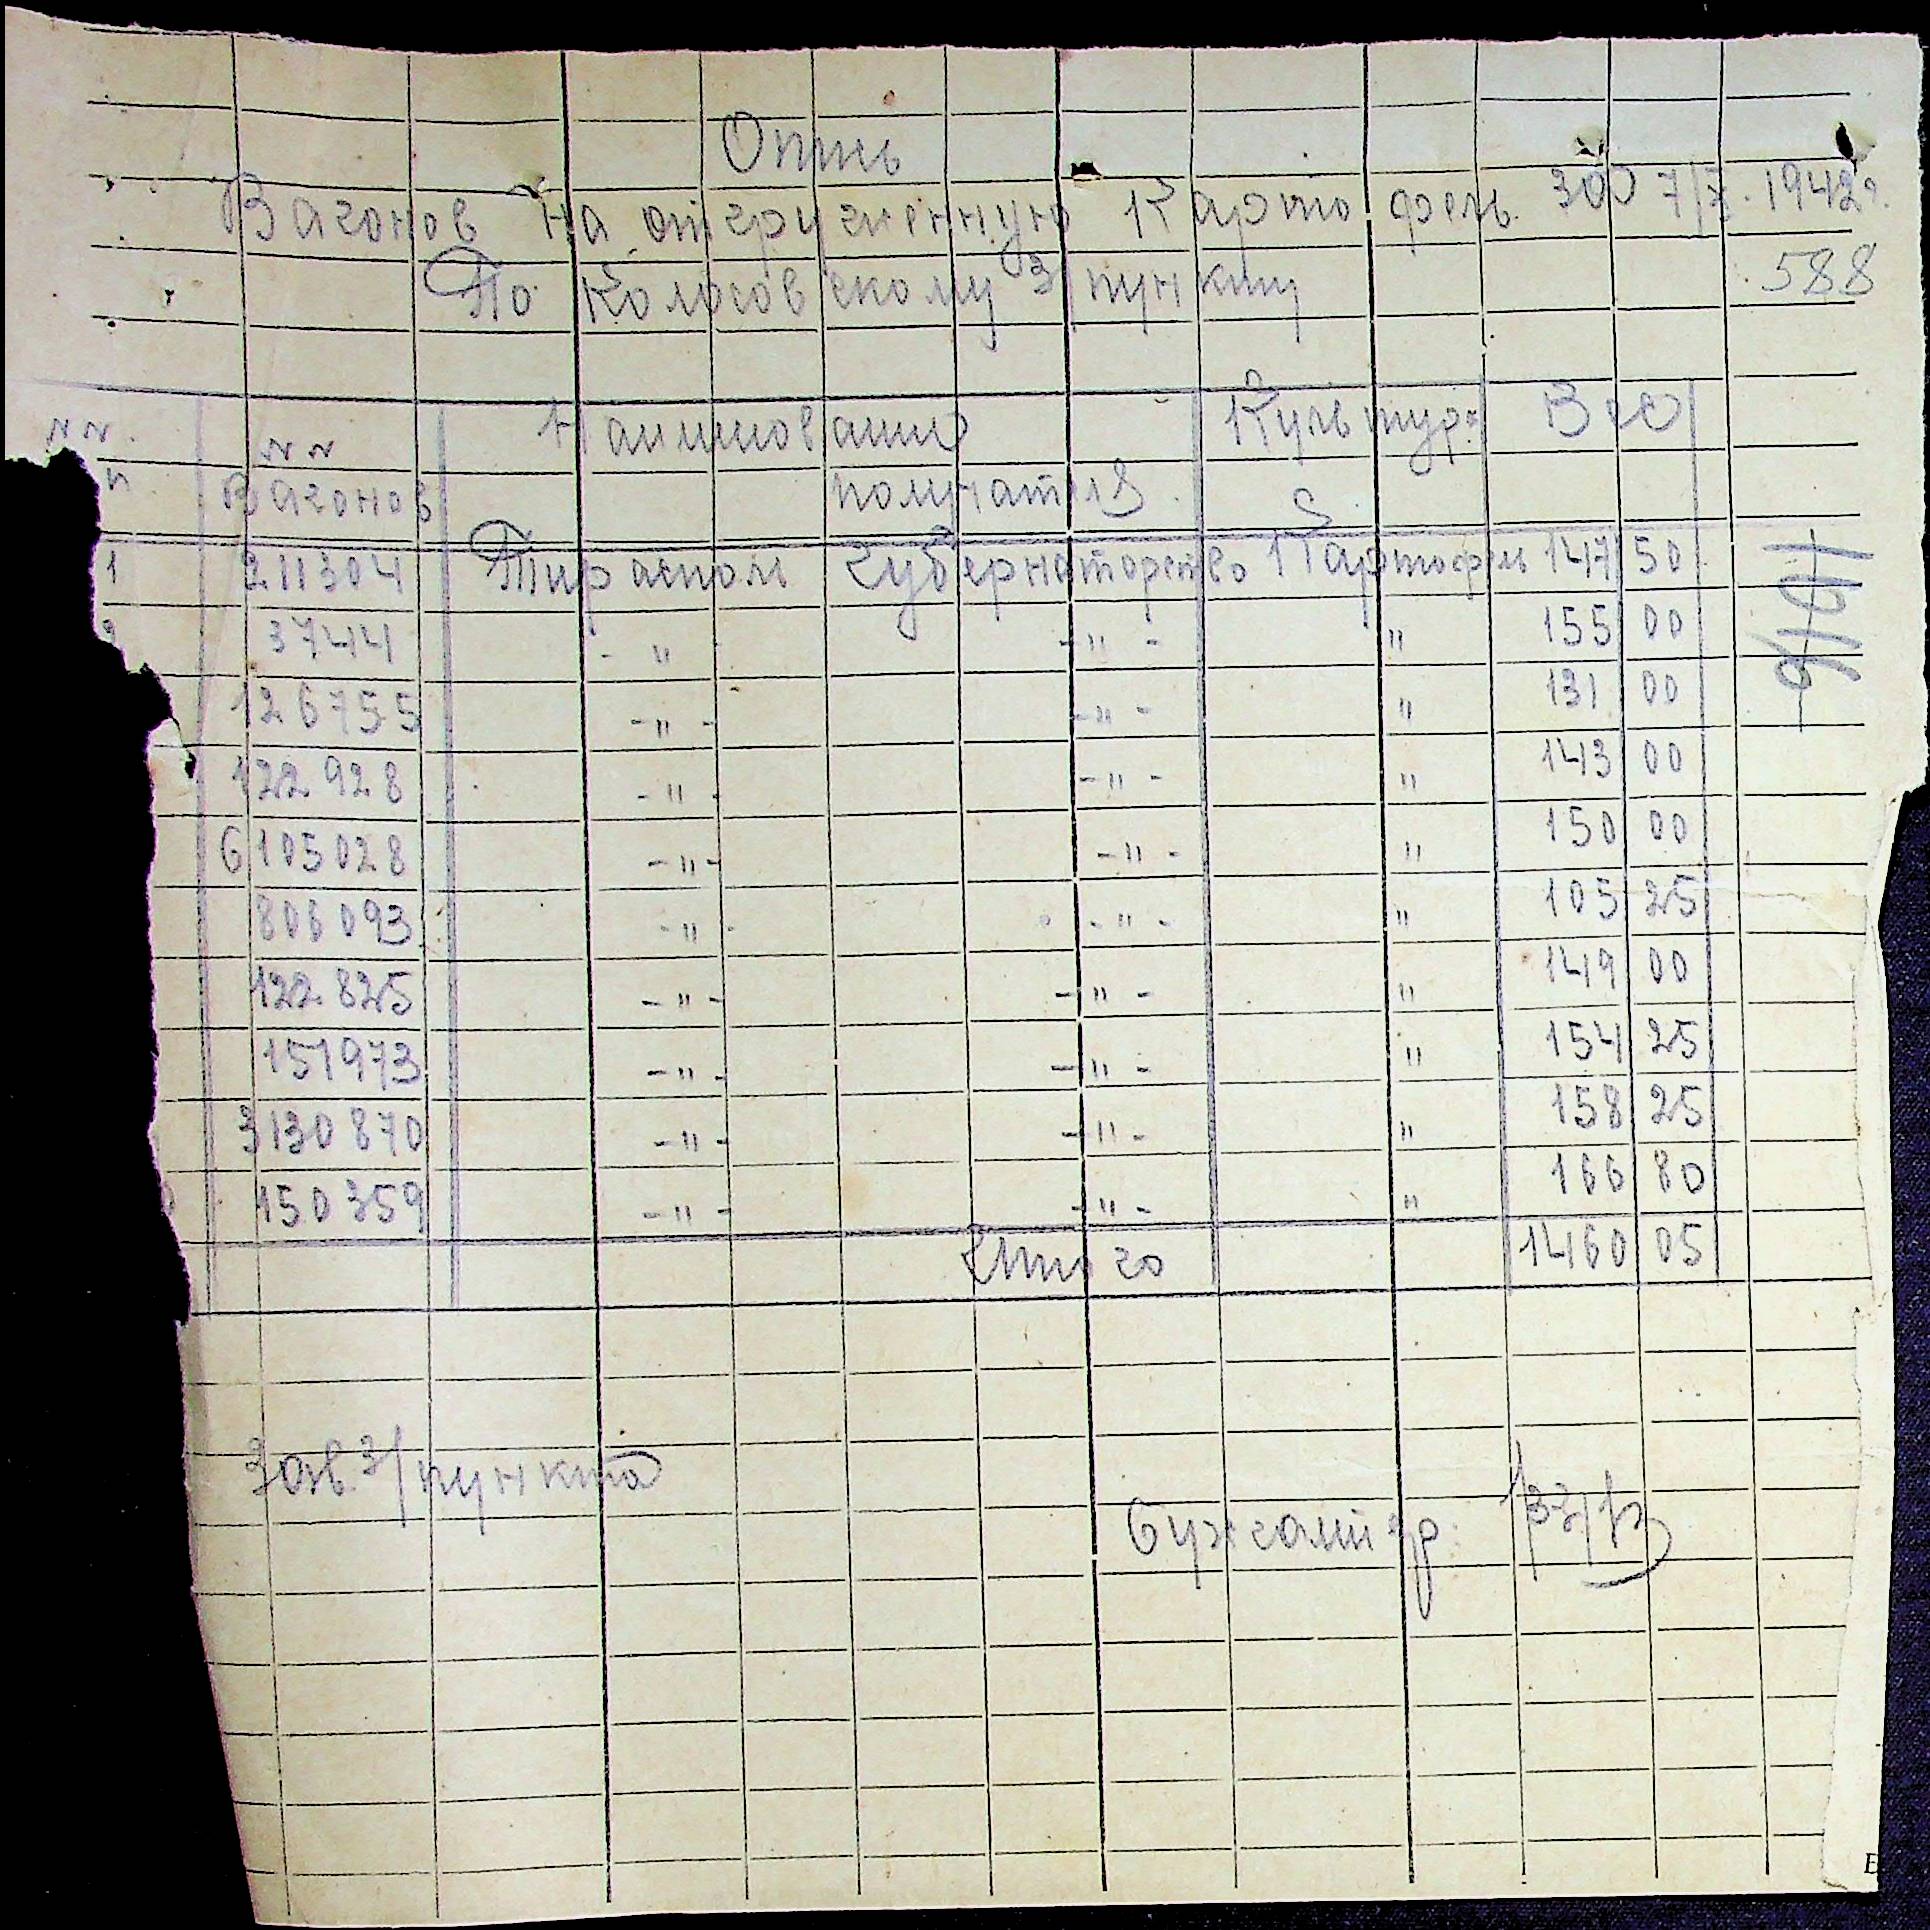 Опись
Вагонов на отгруженную Картофель. ЗОО 7/X. 1942г.
По Колосовскому З/пункту 588
NN. NN Наиминование Культура Вес
п. Вагонов получателя
1 211304 Тирасполь Губернаторство Картофель 147 50
2 3744 -"- -"- " 155 00
126755 -"- -"- " 131 00
122928 -"- -"- " 143 00
6105028 -"- -"- " 150 00
806093 -"- -"- " 105 25
122825 -"- -"- " 149 00
151973 -"- -"- " 154 25
3130870 -"- -"- " 158 25
150359 -"- -"- " 166 80
Итого 1460 05
Зав. З/пункта